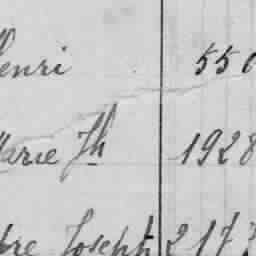 Henri 550
Marie Jh 1928
Joseph 2173